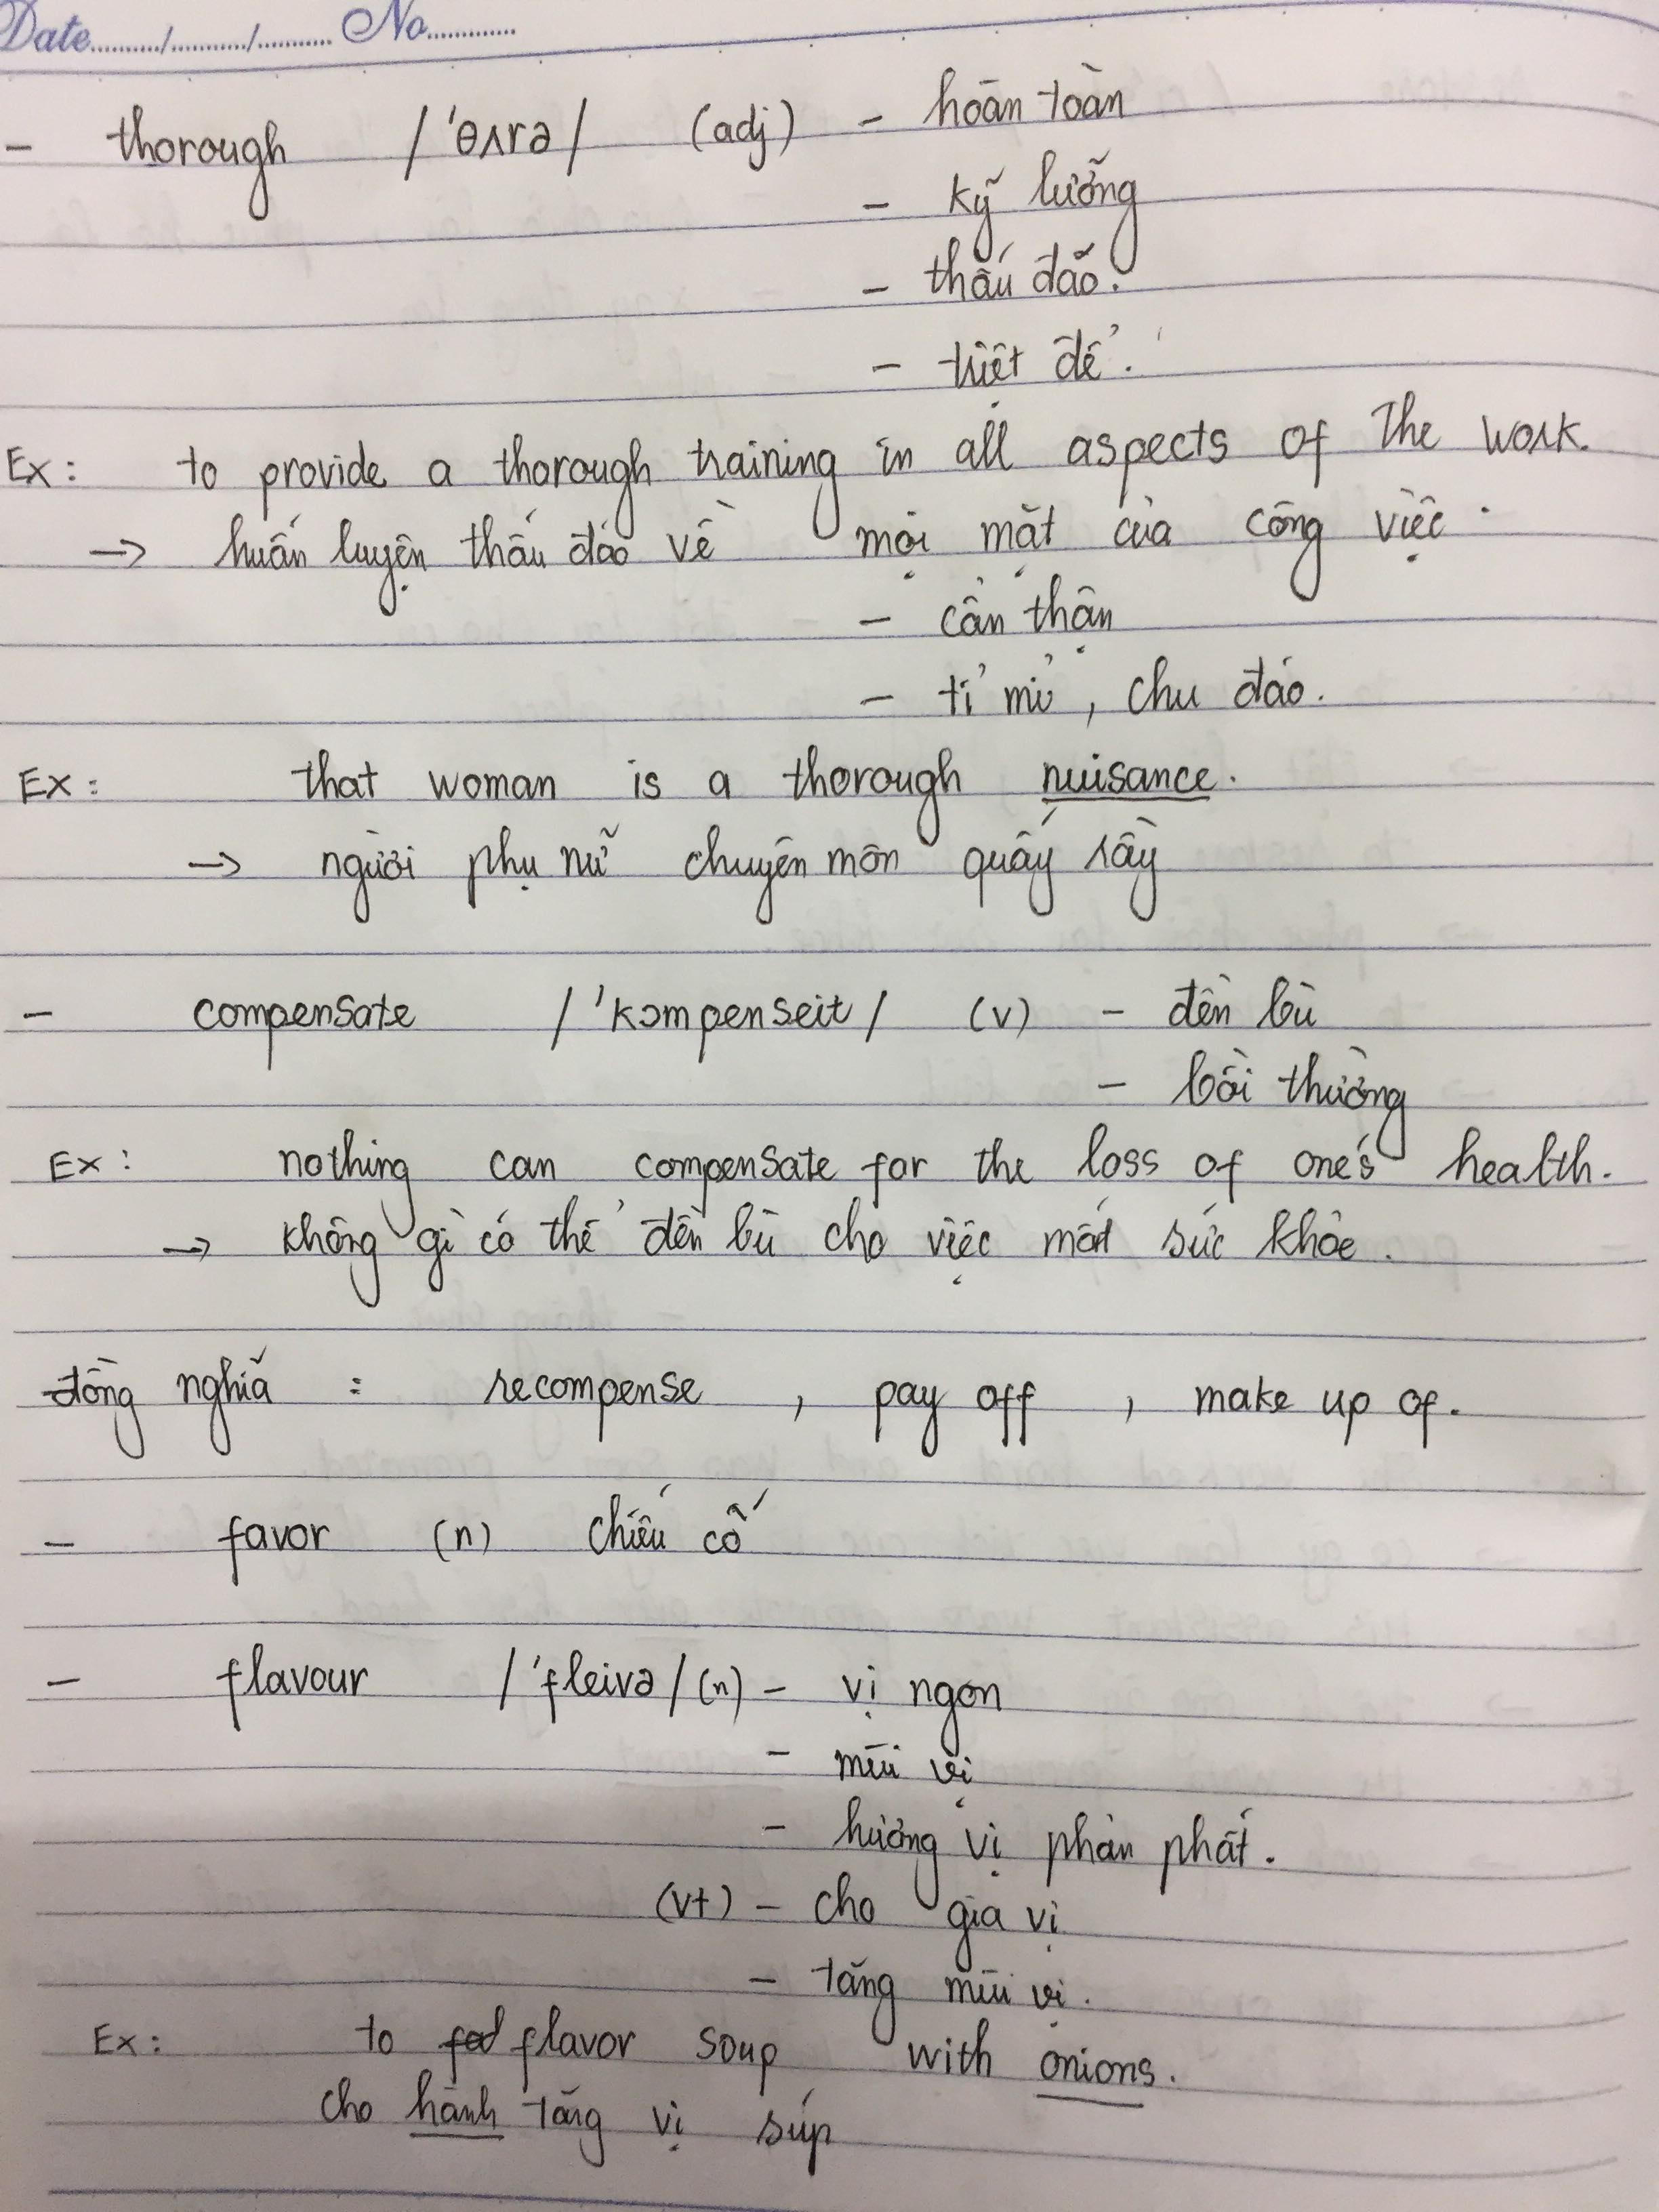 Date ........../.........../........... No.............
- thorough /'θʌrə/ (adj) - hoàn toàn
- kỹ lưỡng
- thấu đáo.
- triệt để.
Ex: to provide a thorough training in all aspects of the work.
→ huấn luyện thấu đáo về mọi mặt của công việc.
- cẩn thận
- tỉ mỉ, chu đáo.
Ex: that woman is a thorough nuisance.
→ người phụ nữ chuyên môn quấy rầy
- compensate /'kɔmpenseit/ (v) - đền bù
- bồi thường
Ex: nothing can compensate for the loss of one's health.
→ không gì có thể đền bù cho việc mất sức khỏe.
đồng nghĩa : recompense, pay off, make up of.
- favor (n) chiếu cố
- flavour /'fleivə/ (n) - vị ngon
- mùi vị
- hương vị phản phất.
(vt) - cho gia vị
- tăng mùi vị.
Ex: to flavor soup with onions.
cho hành tăng vị súp